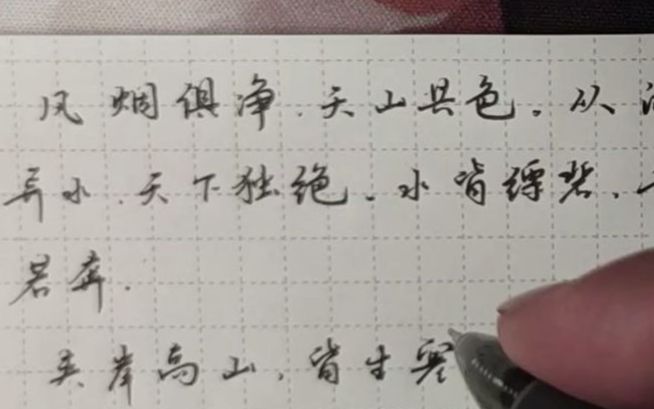 风烟俱净.天山共色.从
异水.天下独绝.水皆缥碧.
若奔.
夹岸高山.皆生寒